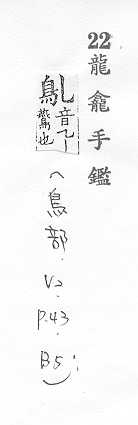 22 龍龕手鑑
鳦 音乙 也
(鳥部. V2. P.43. B5);